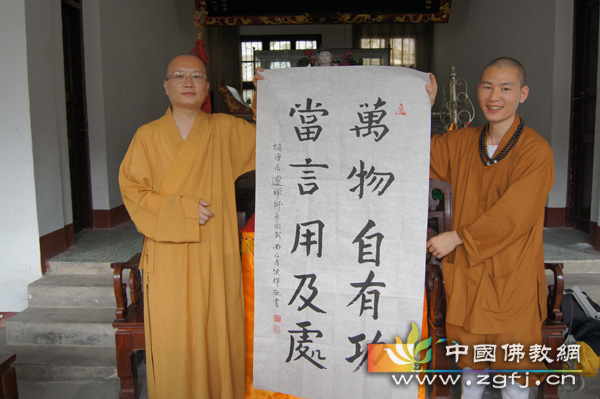 萬物自有功
當言用及處
中國佛教網
www.zgfj.cn